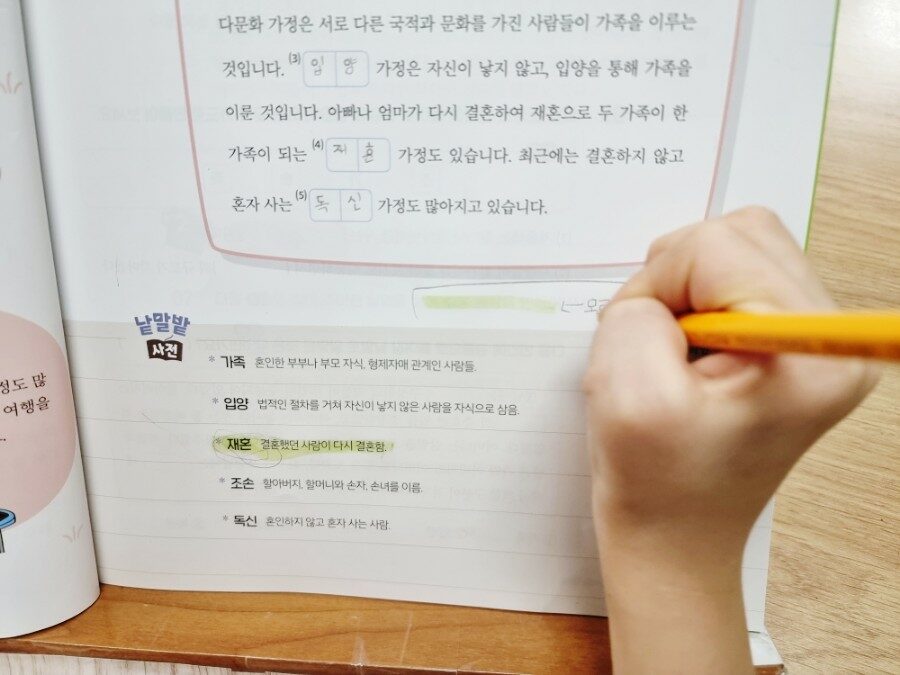 다문화 가정은 서로 다른 국적과 문화를 가진 사람들이 가족을 이루는
것입니다. (3) 입 양 가정은 자신이 낳지 않고, 입양을 통해 가족을
이룬 것입니다. 아빠나 엄마가 다시 결혼하여 재혼으로 두 가족이 한
가족이 되는 (4) 재 혼 가정도 있습니다. 최근에는 결혼하지 않고
혼자 사는 (5) 독 신 가정도 많아지고 있습니다.
정도 많
여행을
낱말밭
사전
* 가족 혼인한 부부나 부모 자식, 형제자매 관계인 사람들.
* 입양 법적인 절차를 거쳐 자신이 낳지 않은 사람을 자식으로 삼음.
* 재혼 결혼했던 사람이 다시 결혼함.
* 조손 할아버지, 할머니와 손자, 손녀를 이름.
* 독신 혼인하지 않고 혼자 사는 사람.